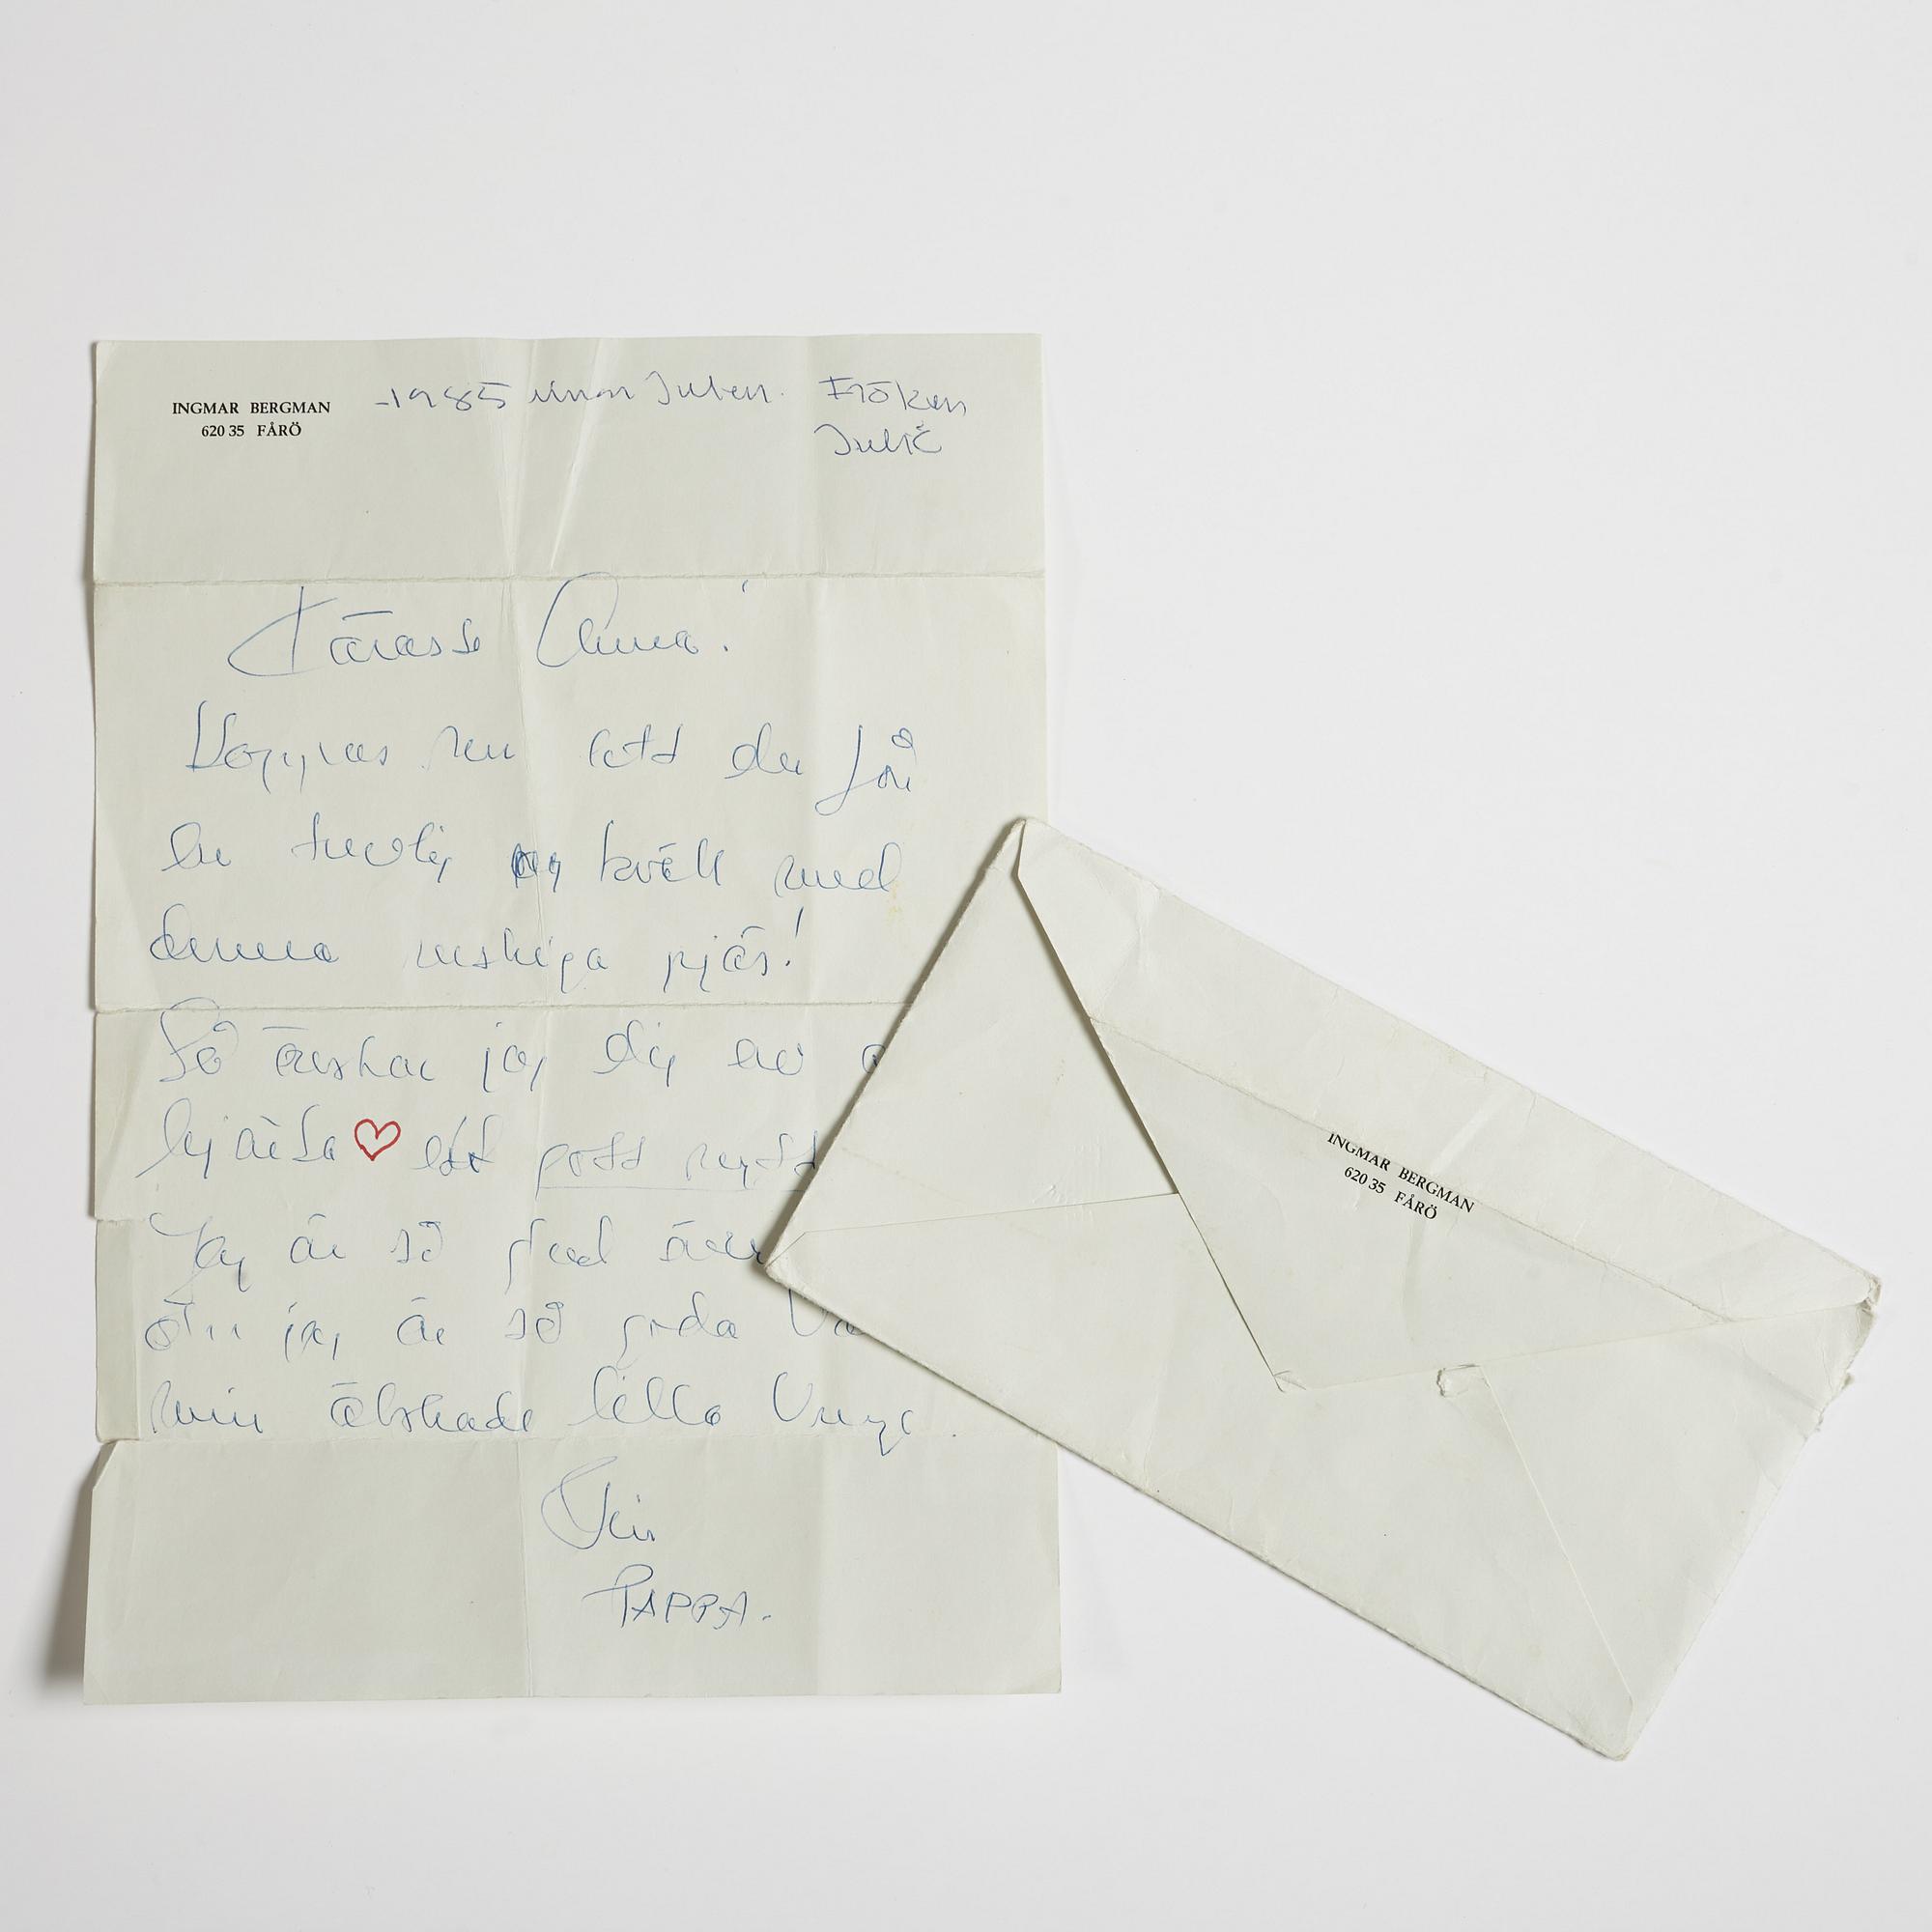 INGMAR BERGMAN
620 35 FÅRÖ
-1985 Julen. Fröken
Julie
Käraste Anna!
Hoppas nu att du får
en trevlig kväll med
denna ruskiga pjäs!
Så önskar jag dig av
hjärta ♡ ett gott nytt
Jag är så glad över
att jag är så goda
min älskade lilla Unge.
Din
PAPPA.
INGMAR BERGMAN
620 35 FÅRÖ